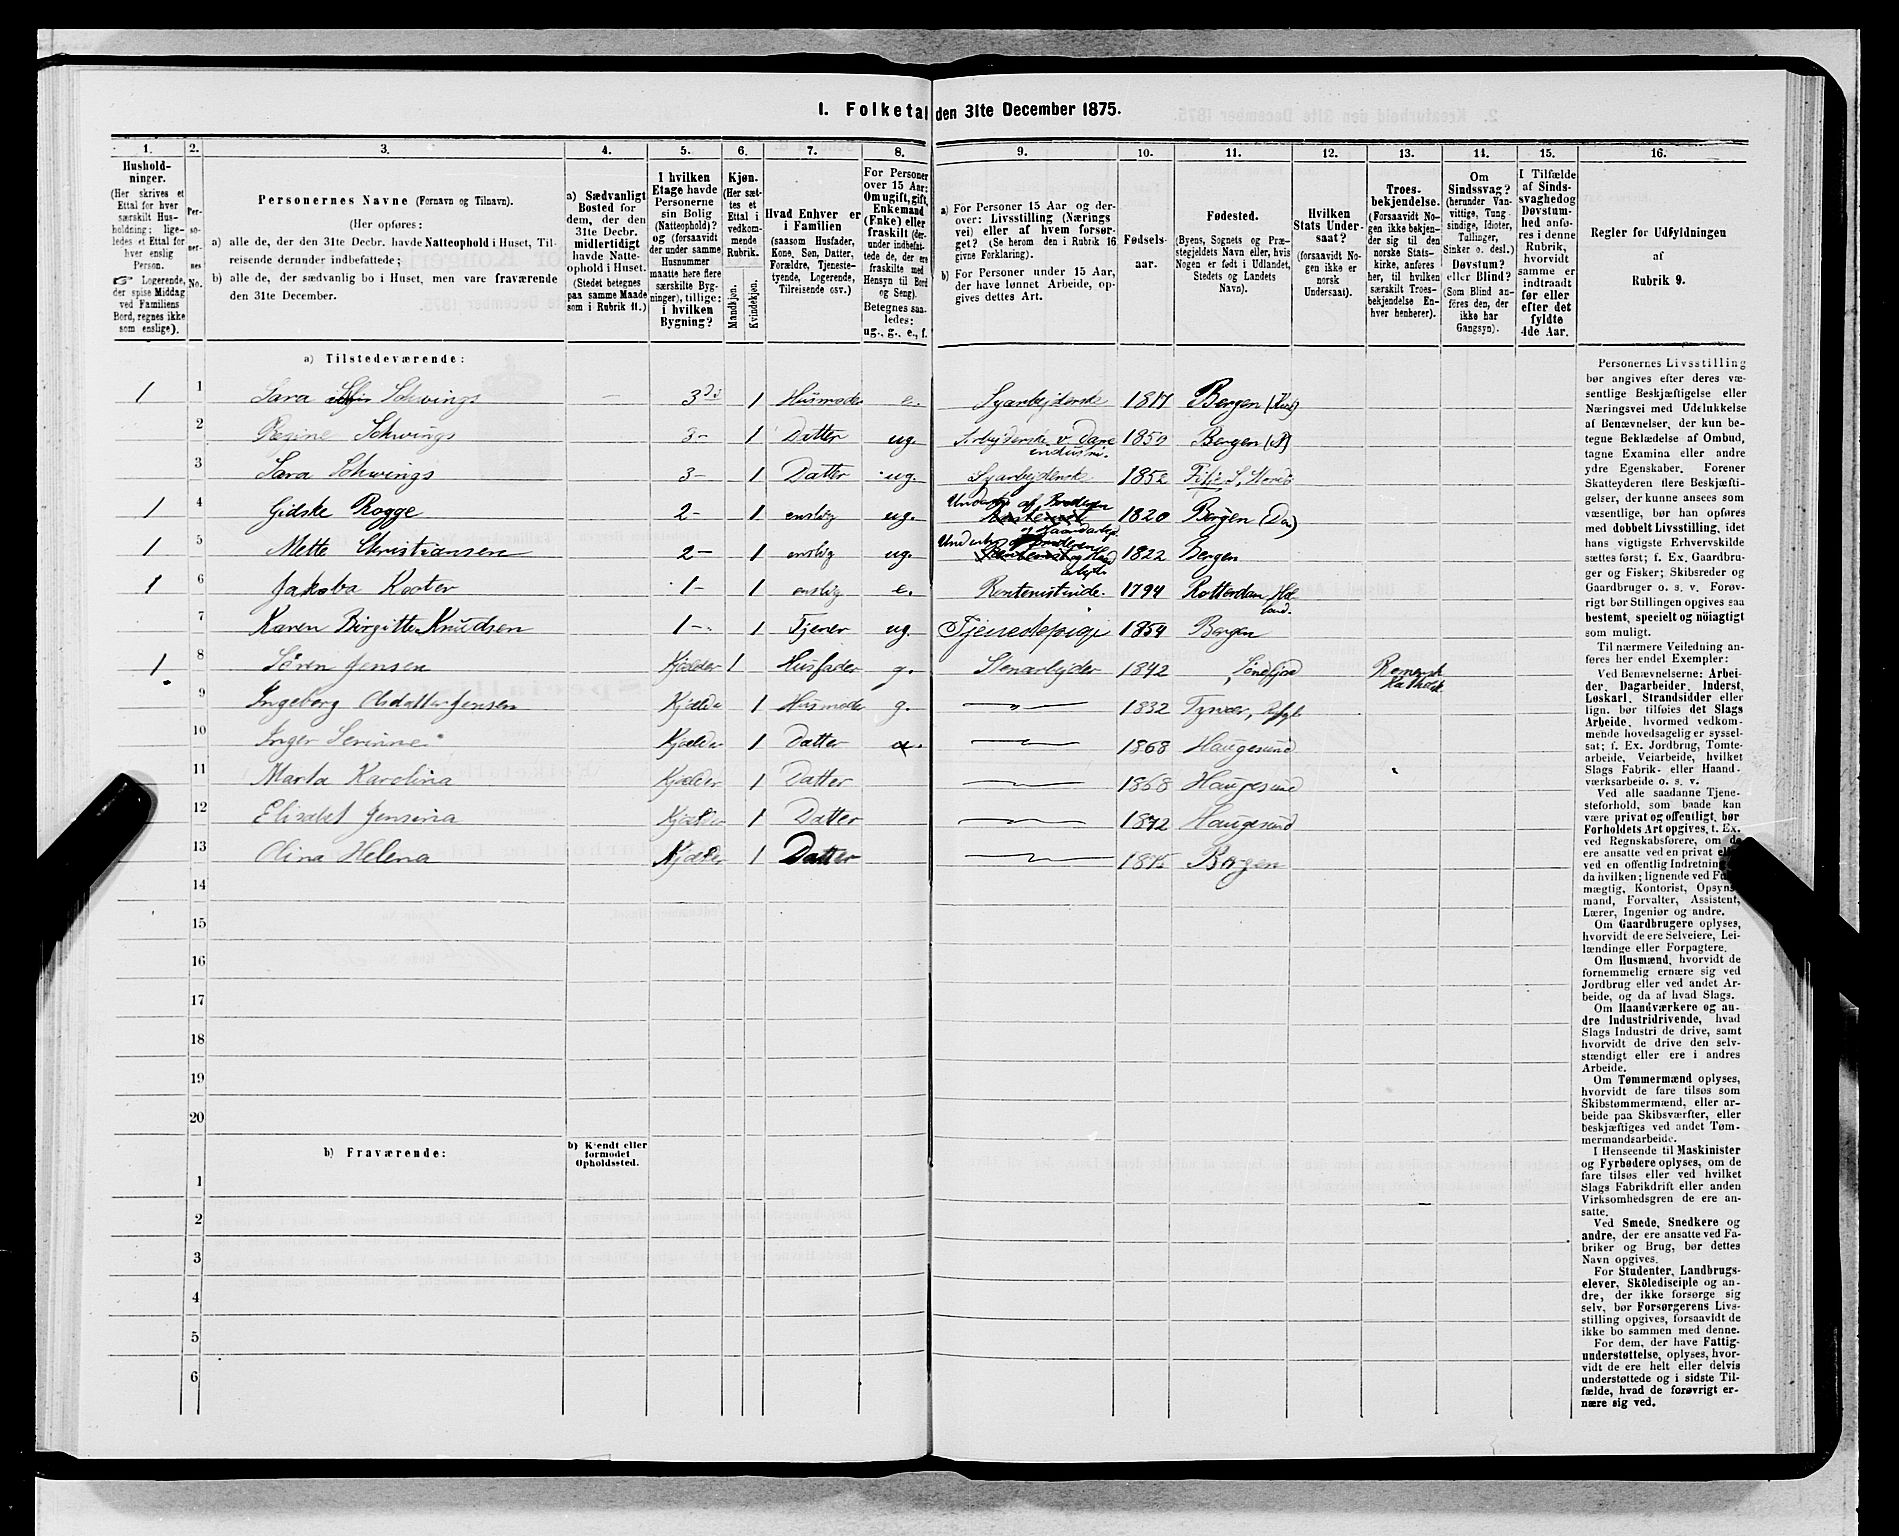 1. Folketal den 31te December 1875.
1. 2. 3. 4. 5. 6. 7. 8. 9. 10. 11. 12. 13. 14. 15. 16.
Hushold-
ninger.
(Her skrives et
Ettal for hver
særskilt Hus-
holdning; lige-
ledes et Ettal for
hver enslig
Person.
Logerende,
der spise Middag
ved Familiens
Bord, regnes ikke
som enslige).
Per-
so-
ner-
nes
No.
Personernes Navne (Fornavn og Tilnavn).
(Her opføres:
a) alle de, der den 31te Decbr. havde Natteophold i Huset, Til-
reisende derunder indbefattede;
b) alle de, der sædvanlig bo i Huset, men vare fraværende
den 31te December.
a) Sædvanligt
Bosted for
dem, der den
31te Decbr.
midlertidigt
havde Natte-
ophold i Huset.
(Stedet betegnes
paa samme Maade
som i Rubrik 11.)
I hvilken
Etage havde
Personerne
sin Bolig
(Natteophold)?
og (forsaavidt
der under samme
Husnummer
maatte høre flere
særskilte Byg-
ninger), tillige:
i hvilken
Bygning?
Kjøn.
(Her sæt-
tes et
Ettal i
vedkom-
mende
Rubrik.
Mandkjøn.
Kvindekjøn.
Hvad Enhver er
i Familien
(saasom Husfader,
Kone, Søn, Datter,
Forældre, Tjeneste-
tyende, Logerende,
Tilreisende csv.)
For Personer
over 15 Aar:
Om ugift, gift,
Enkemand
(Enke) eller
fraskilt (der-
under indbefat-
tede de, der ere
fraskilte med
Hensyn til Bord
og Seng).
Betegnes saa-
ledes:
ug., g., e., f.
a) For Personer 15 Aar og der-
over: Livsstilling (Nærings
vei) eller af hvem forsør-
get? (Se herom den i Rubrik 16
givne Forklaring).
b) For Personer under 15 Aar,
der have lønnet Arbeide, op-
gives dettes Art.
Fødsels-
aar.
Fødested.
(Byens, Sognets og Præ-
stegjeldets Navn eller, hvis
Nogen er født i Udlandet,
Stedets og Landets
Navn).
Hvilken
Stats Under-
saat?
(forsaavidt No-
gen ikke er
norsk
Undersaat).
Troes-
bekjendelse.
(Forsaavidt No-
gen ikke bekjen-
der sig til den
norske Stats-
kirke, anføres
her, til hvilken
særskilt Troes-
bekjendelse En-
hver henhører).
Om
Sindssvag?
(herunder Van-
vittige, Tung-
sindige, Idioter,
Tullinger,
Sinker o. desl.)
Døvstum?
eller Blind?
(Som Blind an-
føres den, der
ikke har
Gangsyn).
I Tilfælde
af Sinds-
svaghed og
Døvstum-
hed anfø-
res i denne
Rubrik,
hvorvidt
samme er
indtraadt
før eller
efter det
fyldte
4de Aar.
Regler for Udfyldningen
af
Rubrik 9.
a) Tilstedeværende:
1 1 Sara Schwings – 3die 1 Husmoder e. Syarbejderske 1817 Bergen
2 Regine Schwings 3– 1 Datter ug. Arbejderske v. Dame industri. 1850 Bergen
3 Sara Schwings 3– 1 Datter ug. Syarbejderske 1852
1 4 Gidske Rogge 2– 1 enslig ug. 1820 Bergen
1 5 Mette Christiansen 2– 1 enslig ug. 1822 Bergen
1 6 Jakoba Koster 1– 1 enslig e. Rentenistinde. 1794 Rotterdam Hol-
land.
7 Karen Birgitte Knudsen 1– 1 Tjener ug. Tjenestepige 1854 Bergen
1 8 Søren Jensen Kjælder 1 Husfader g. Stenarbejder 1842 Søndfjord Romersk
Katholsk
9 Ingeborg Olsdatter Jensen Kjælder 1 Husmoder g. 1832 Tysvær,
10 Inger Serinne Kjælder 1 Datter 1868 Haugesund
11 Marta Karolina Kjælder 1 Datter 1868 Haugesund
12 Elisabet Jensina Kjælder 1 Datter 1872 Haugesund
13 Olina Helena Kjælder 1 Datter 1875 Bergen
14
15
16
17
18
19
20
b) Fraværende:
b) Kjendt eller
formodet
Opholdssted.
1
2
3
4
5
6
Personernes Livsstilling
bør angives efter deres væ-
sentlige Beskjæftigelse eller
Næringsvei med Udelukkelse
af Benævnelser, der kun be-
tegne Beklædelse af Ombud,
tagne Examina eller andre
ydre Egenskaber. Forener
Skatteyderen flere Beskjæfti-
gelser, der kunne ansees som
væsentlige, bør han opføres
med dobbelt Livsstilling, idet
hans vigtigste Erhvervskilde
sættes først; f. Ex. Gaardbru-
ger og Fisker; Skibsreder og
Gaardbruger o. s. v. Forøv-
rigt bør Stillingen opgives saa
bestemt, specielt og nöiagtigt
som muligt.
Til nærmere Veiledning an-
føres her endel Exempler:
Ved Benævnelserne: Arbei-
der, Dagarbeider, Inderst,
Løskarl, Strandsidder eller
lign. bør tilføies det Slags
Arbeide, hvormed vedkom-
mende hovedsagelig er syssel-
sat; f. Ex. Jordbrug, Tomte-
arbeide, Veiarbeide, hvilket
Slags Fabrik- eller Haand-
værksarbeide o. s. v.
Ved alle saadanne Tjene-
steforhold, som baade kan
være privat og offentligt, bør
Forholdets Art opgives, t. Ex.
ved Regnskabsførere, om de
ere ansatte ved en privat eller
ved en offentlig Indretning og
da hvilken; lignende ved Fuld-
mægtig, Kontorist, Opsyns-
mand, Forvalter, Assistent,
Lærer, Ingeniør og andre.
Om Gaardbrugere oplyses,
hvorvidt de ere Selveiere, Lei-
lændinge eller Forpagtere.
Om Husmænd, hvorvidt de
fornemmelig ernære sig ved
Jordbrug eller ved andet Ar-
beide, og da af hvad Slags.
Om Haandværkere og an-
dre Industridrivende, hvad
Slags Industri de drive, samt
hvorvidt de drive den selv-
stændigt eller ere i andres
Arbeide.
Om Tømmermænd oplyses,
hvorvidt de fare tilsøs som
Skibstømmermænd, eller ar-
beide paa Skibsværfter, eller
beskjæftiges ved andet Tøm-
mermandsarbeide.
I Henseende til Maskinister
og Fyrbødere oplyses, om de
fare tilsøs eller ved hvilket
Slags Fabrikdrift eller anden
Virksomhedsgren de ere an-
satte.
Ved Smede, Snedkere og
andre, der ere ansatte ved Fa-
briker og Brug, bør dettes
Navn opgives.
For Studenter, Landbrugs-
elever, Skoledisciple og an-
dre, der ikke forsørge sig
selv, bør Forsørgerens Livs-
stilling opgives, forsaavidt de
ikke bo sammen med denne.
For dem, der have Fattig-
understøttelse, oplyses, hvor-
vidt de ere helt eller delvis
understøttede og i sidste Til-
fælde, hvad de forøvrigt er-
nære sig ved.